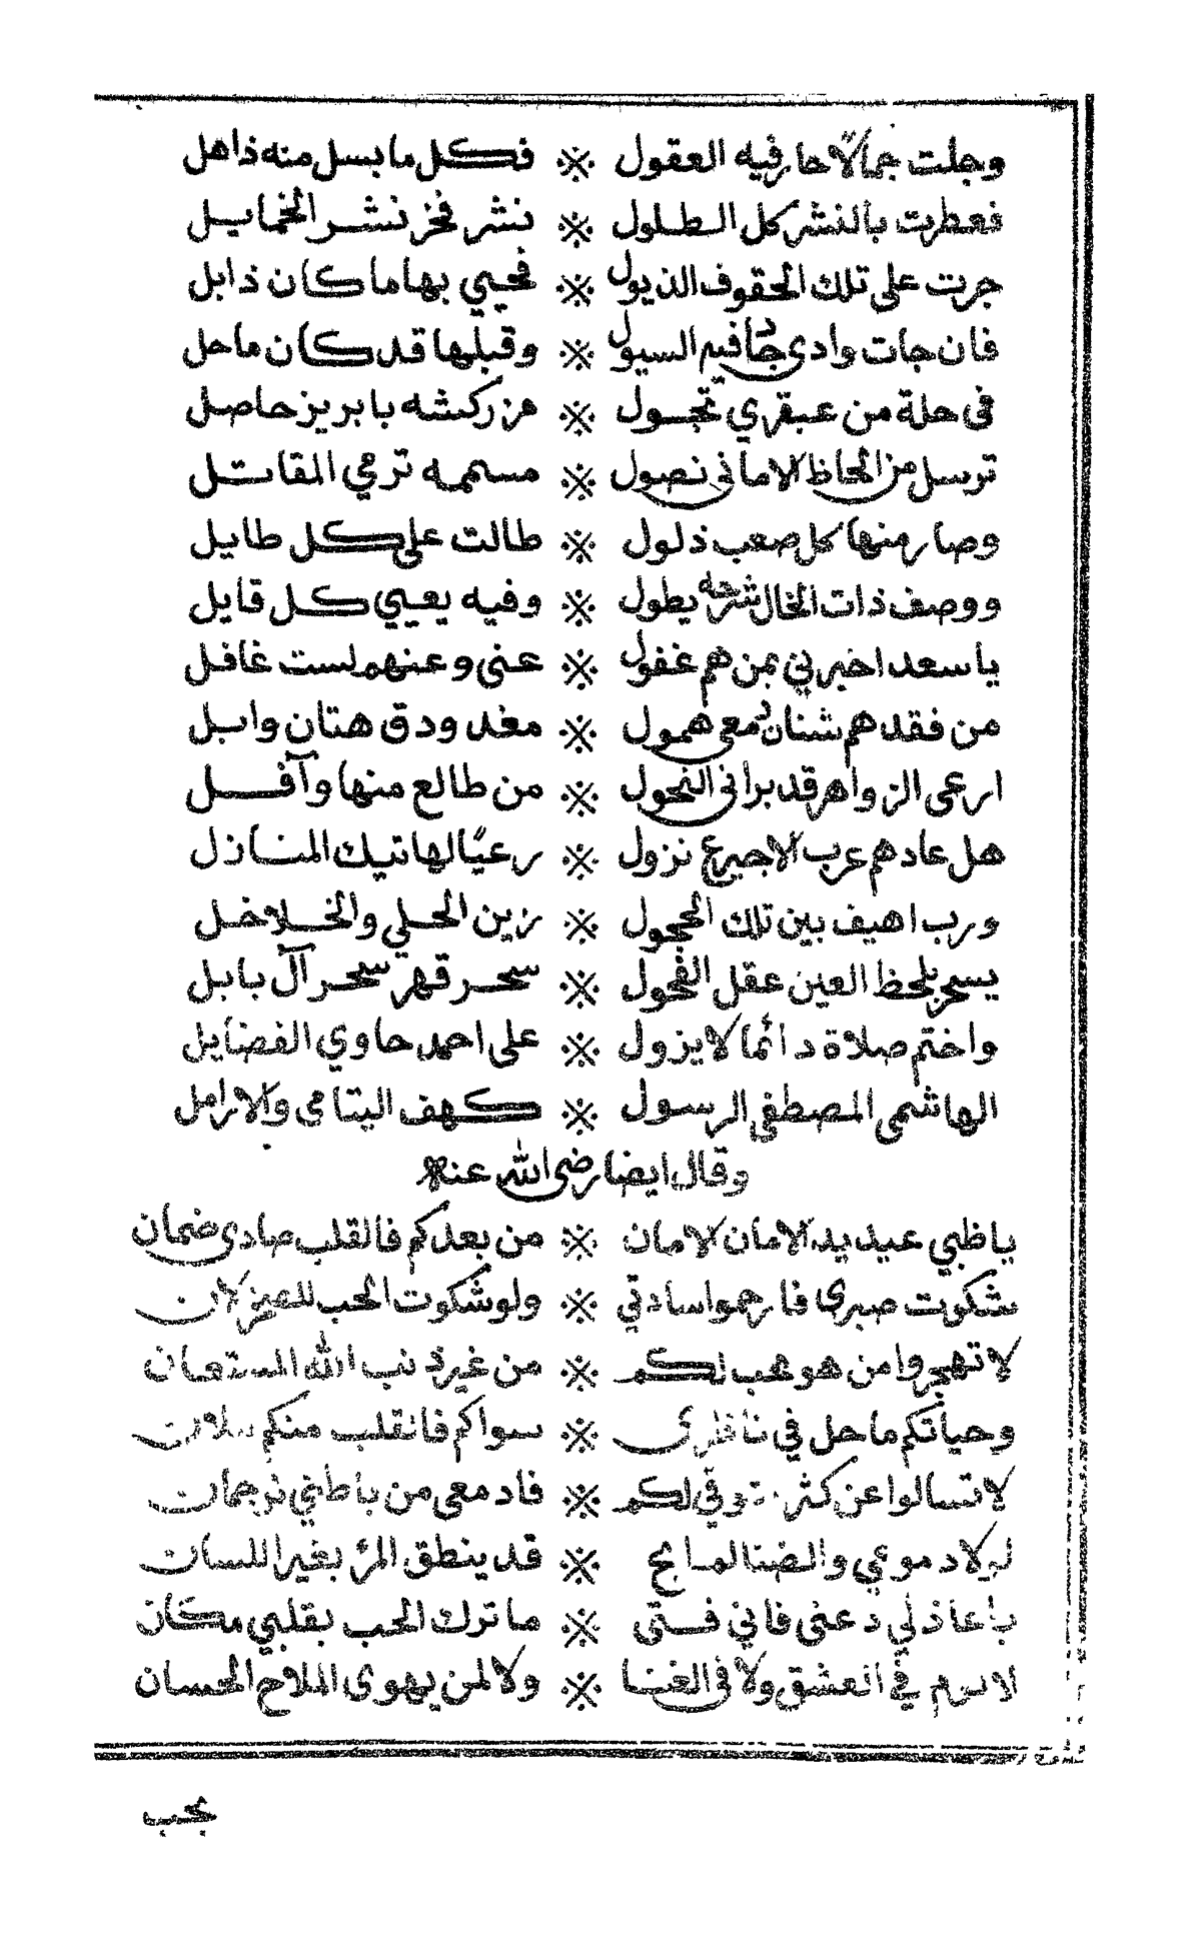 وجلت جمالاً حار فيه العقول ※ فكل ما بسل منه ذاهل
فعطرت بالنشر كل الطلول ※ نشر فخر نشر الخمايل
جرت على تلك الحقوف الذيول ※ فحيي بها ما كان ذابل
فان جات وادى جادت فيه السيول ※ وقبلها قد كان ماحل
فى حلة من عبقري تجول ※ مزركشه بابريز حاصل
ترسل من الحاظ الامانى نصول ※ مسممه ترمي المقاتل
وصار منها كل صعب ذلول ※ طالت على كل طايل
ووصف ذات الخال شرحه يطول ※ وفيه يعيي كل قايل
يا سعد اخبرني بمن هم غفول ※ عنى وعنهم لست غافل
من فقدهم شنان دمعى همول ※ مغد ودق هتان وابل
ارعى الزواهر قد برانى النحول ※ من طالع منها وآفل
هل عادهم عرب الاجيرع نزول ※ رعيًا لهاتيك المنازل
ورب اهيف بين تلك الحجول ※ زين الحلي والخلاخل
يسحر بلحظ العين عقل الفحول ※ سحر قهر سحر آل بابل
واختم صلاة دائما لا يزول ※ على احمد حاوي الفضايل
الهاشمى المصطفى الرسول ※ كهف اليتامى والارامل
وقال ايضا رضى الله عنه
يا ظبي عيديد الامان الامان ※ من بعدكم فالقلب صادى ضمان
شكوت صبرى فارحموا سادتي ※ ولو شكوت الحب للصخر لان
لا تهجروا من هو محب لكم ※ من غير ذنب الله المستعان
وحياتكم ما حل في ناظرى ※ سواكم فالقلب منكم ملان
لا تسالوا عن كثر شوقي لكم ※ فادمعى من باطني ترجمان
لولا دموعي والضنا لم ابح ※ قد ينطق المرء بغير اللسان
يا عاذلي دعنى فاني فتى ※ ما ترك الحب بقلبي مكان
لا لوم في العشق ولا فى الغنا ※ ولا لمن يهوى الملاح الحسان
بجب